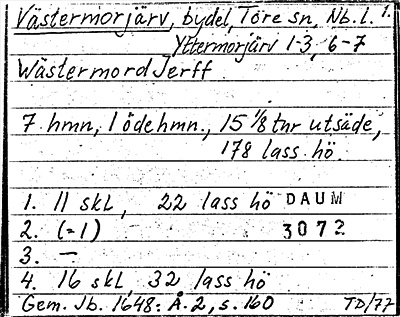 Västermorjärv, bydel, Töre sn, Nb.l. 1.
Yttermorjärv 1-3, 6-7
Wästermord Jerff
7 hmn, 1 ödehmn., 15 1/8 tnr utsäde,
178 lass hö.
1. 11 skl, 22 lass hö DAUM
2. (=1) 3072
3. —
4. 16 skl, 32 lass hö
Gem. Jb. 1648: Å. 2, s. 160 TD/77